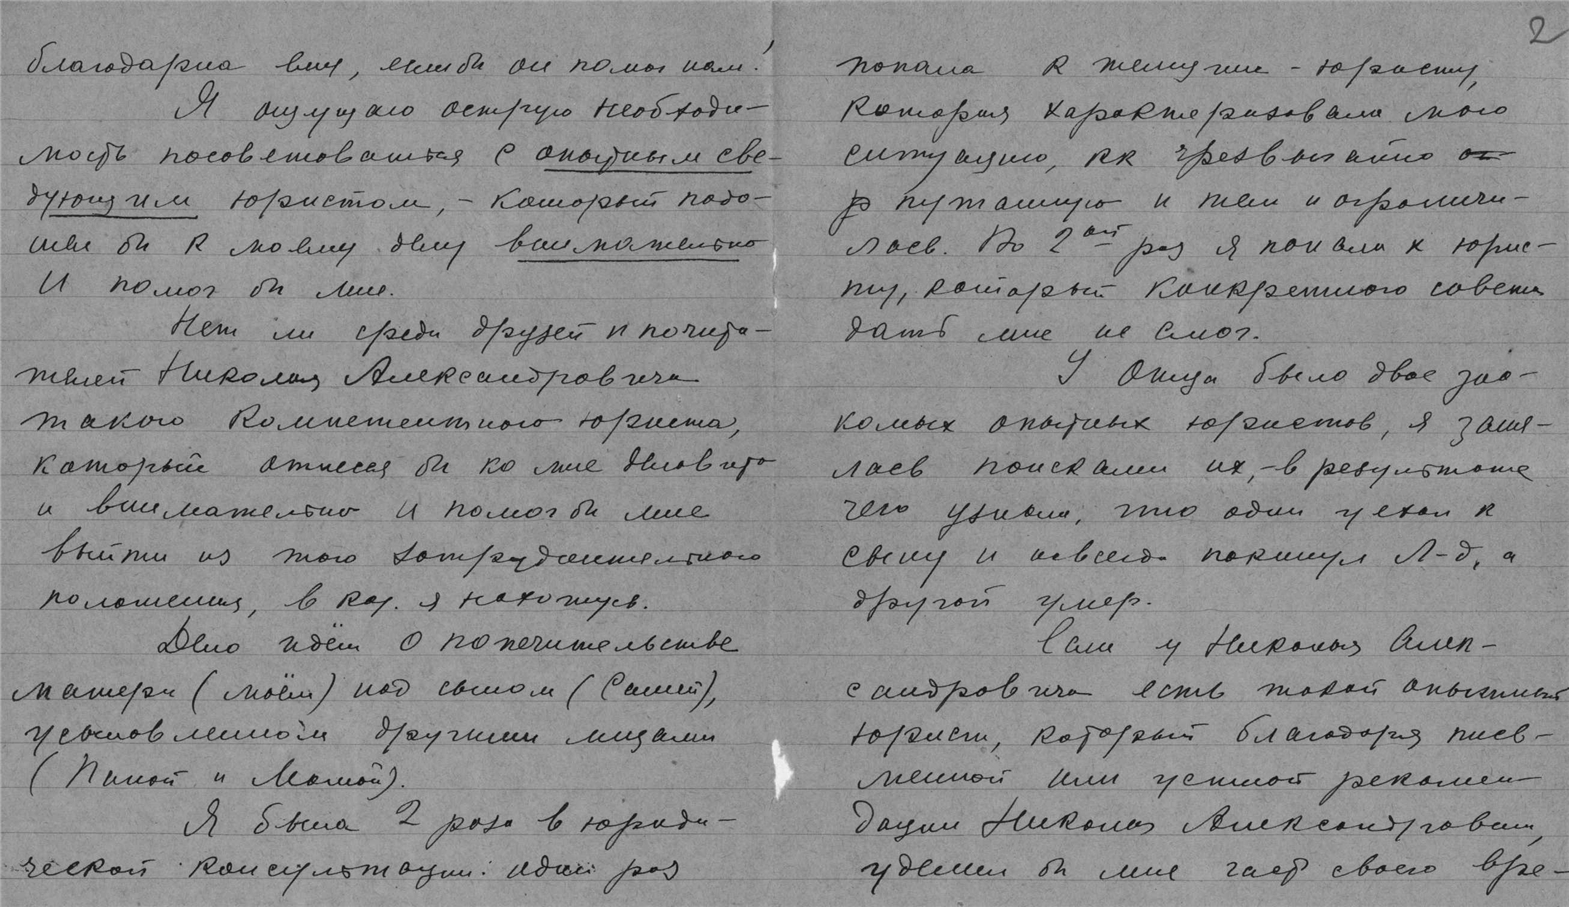 благодарна ему, если бы он помог нам!
Я ощущаю острую необходи-
мость посоветоваться с опытным све-
дующим юристом, – который подо-
шел бы к моему делу внимательно
и помог бы мне.
Нет ли среди друзей и почита-
телей Николая Александровича
такого компетентного юриста,
который отнесся бы ко мне деловито
и внимательно и помог бы мне
выйти из того затруднительного
положения, в кот. я нахожусь.
Дело идёт о попечительстве
матери (моём) над сыном (Сашей),
усыновленном другими лицами
(Папой и Мамой).
Я была 2 раза в юриди-
ческой консультации: один раз
2
попала к женщине – юристу,
которая характеризовала мою
ситуацию, кк чрезвычайно
путанную и тем и ограничи-
лась. Во 2ой раз я попала к юрис-
ту, который конкретного совета
дать мне не смог.
У Отца было двое зна-
комых опытных юристов, я заня-
лась поисками их, – в результате
чего узнала, что один уехал к
сыну и навсегда покинул Л-д, а
другой умер.
Если у Николая Алек-
сандровича есть такой опытный
юрист, который благодаря пись-
менной или устной рекомен-
дации Николая Александровича,
уделил бы мне часть своего вре-